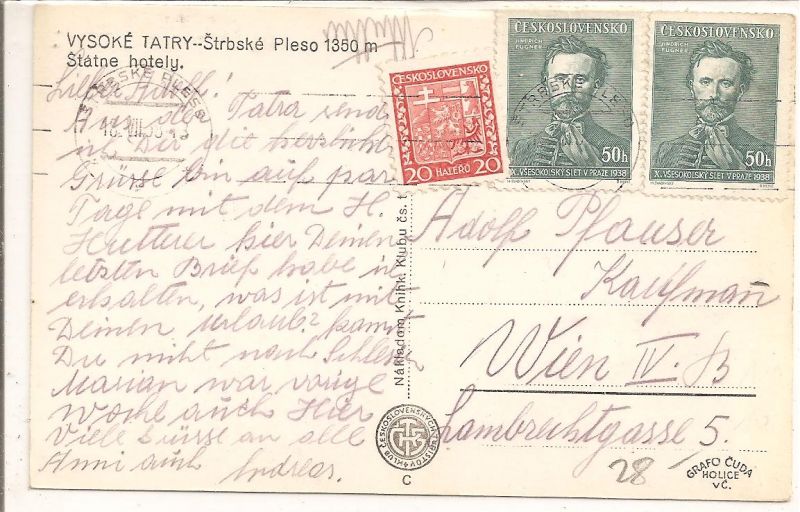 VYSOKÉ TATRY--Štrbské Pleso 1350 m
Štátne hotely.
ČESKOSLOVENSKO
20 HALÉŘŮ 20
ČESKOSLOVENSKO
JINDŘICH FÜGNER
50h
X. VŠESOKOLSKÝ SLET V PRAZE 1938
ČESKOSLOVENSKO
JINDŘICH FÜGNER
50h
X. VŠESOKOLSKÝ SLET V PRAZE 1938
ŠTRBSKÉ PLESO
Lieber
Aus der Tatra send
ich Dir die herzlichst
Grüsse bin auf par
Tage mit dem H.
Hutterer hier Deinen
letzten Brief habe ich
erhalten, was ist mit
Deinem Urlaub? kamst
Du nicht nach Schlesien
Marian war vorige
Woche auch Hier
Viele Grüsse an alle
Anni auch Andreas.
Adolf Pfauser
Kaufmann
Wien IV. B
Lambrechtgasse 5.
28
Nákladom Knihk. Klubu čs. t.
KLUB ČESKOSLOVENSKÝCH TURISTOV
C
GRAFO ČUDA
HOLICE
v Č.